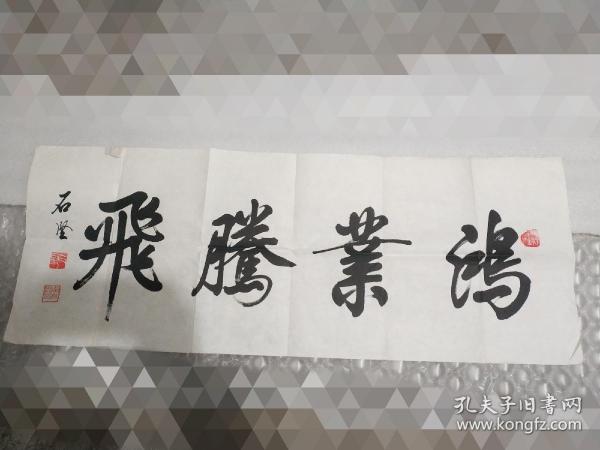 鴻業騰飛
石堅
孔夫子旧書网
www.kongfz.com